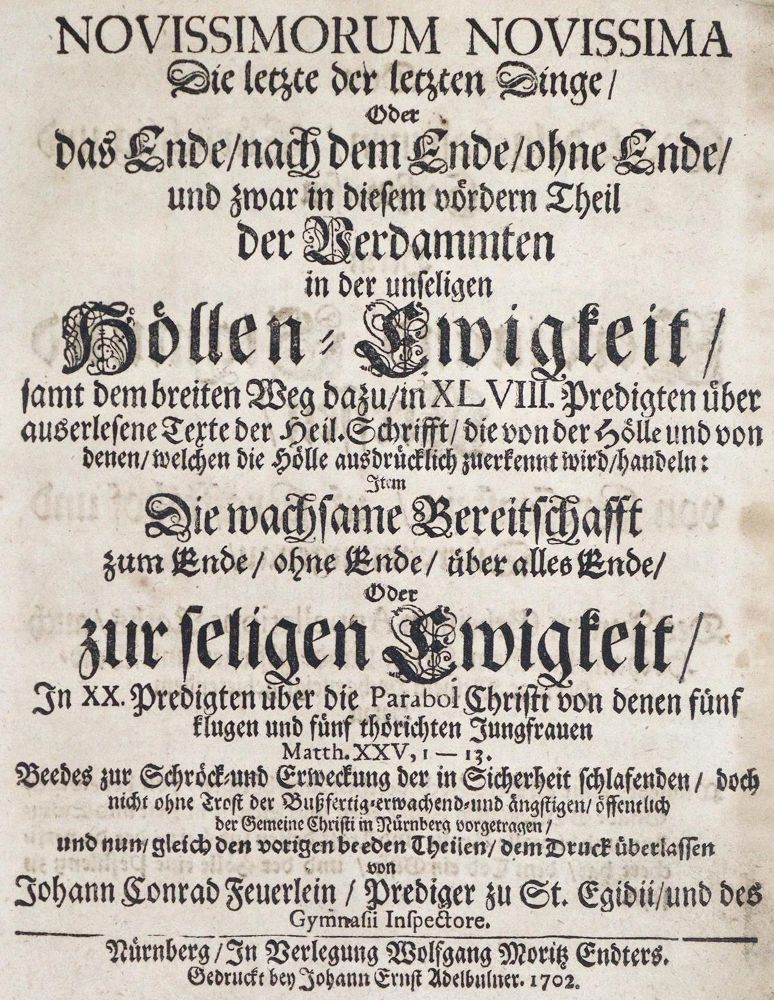 NOVISSIMORUM NOVISSIMA
Die letzte der letzten Dinge/
Oder
das Ende/nach dem Ende/ohne Ende/
und zwar in diesem vördern Theil
der Verdammten
in der unseligen
Höllen-Ewigkeit/
samt dem breiten Weg dazu/in XLVIII. Predigten über
auserlesene Texte der Heil. Schrifft/ die von der Hölle und von
denen/ welchen die Hölle ausdrücklich zuerkennt wird/handeln:
Item
Die wachsame Bereitschafft
zum Ende/ ohne Ende/ über alles Ende/
Oder
zur seligen Ewigkeit/
In XX. Predigten über die Parabol Christi von denen fünf
klugen und fünf thörichten Jungfrauen
Matth. XXV, 1 — 13.
Beedes zur Schröck-und Erweckung der in Sicherheit schlafenden/ doch
nicht ohne Trost der Bußfertig-erwachend-und ängstigen/ öffentlich
der Gemeine Christi in Nürnberg vorgetragen/
und nun/ gleich den vorigen beeden Theilen/ dem Druck überlassen
von
Johann Conrad Feuerlein / Prediger zu St. Egidii/und des
Gymnasii Inspectore.
Nürnberg/ In Verlegung Wolfgang Moritz Endters.
Gedruckt bey Johann Ernst Adelbulner. 1702.